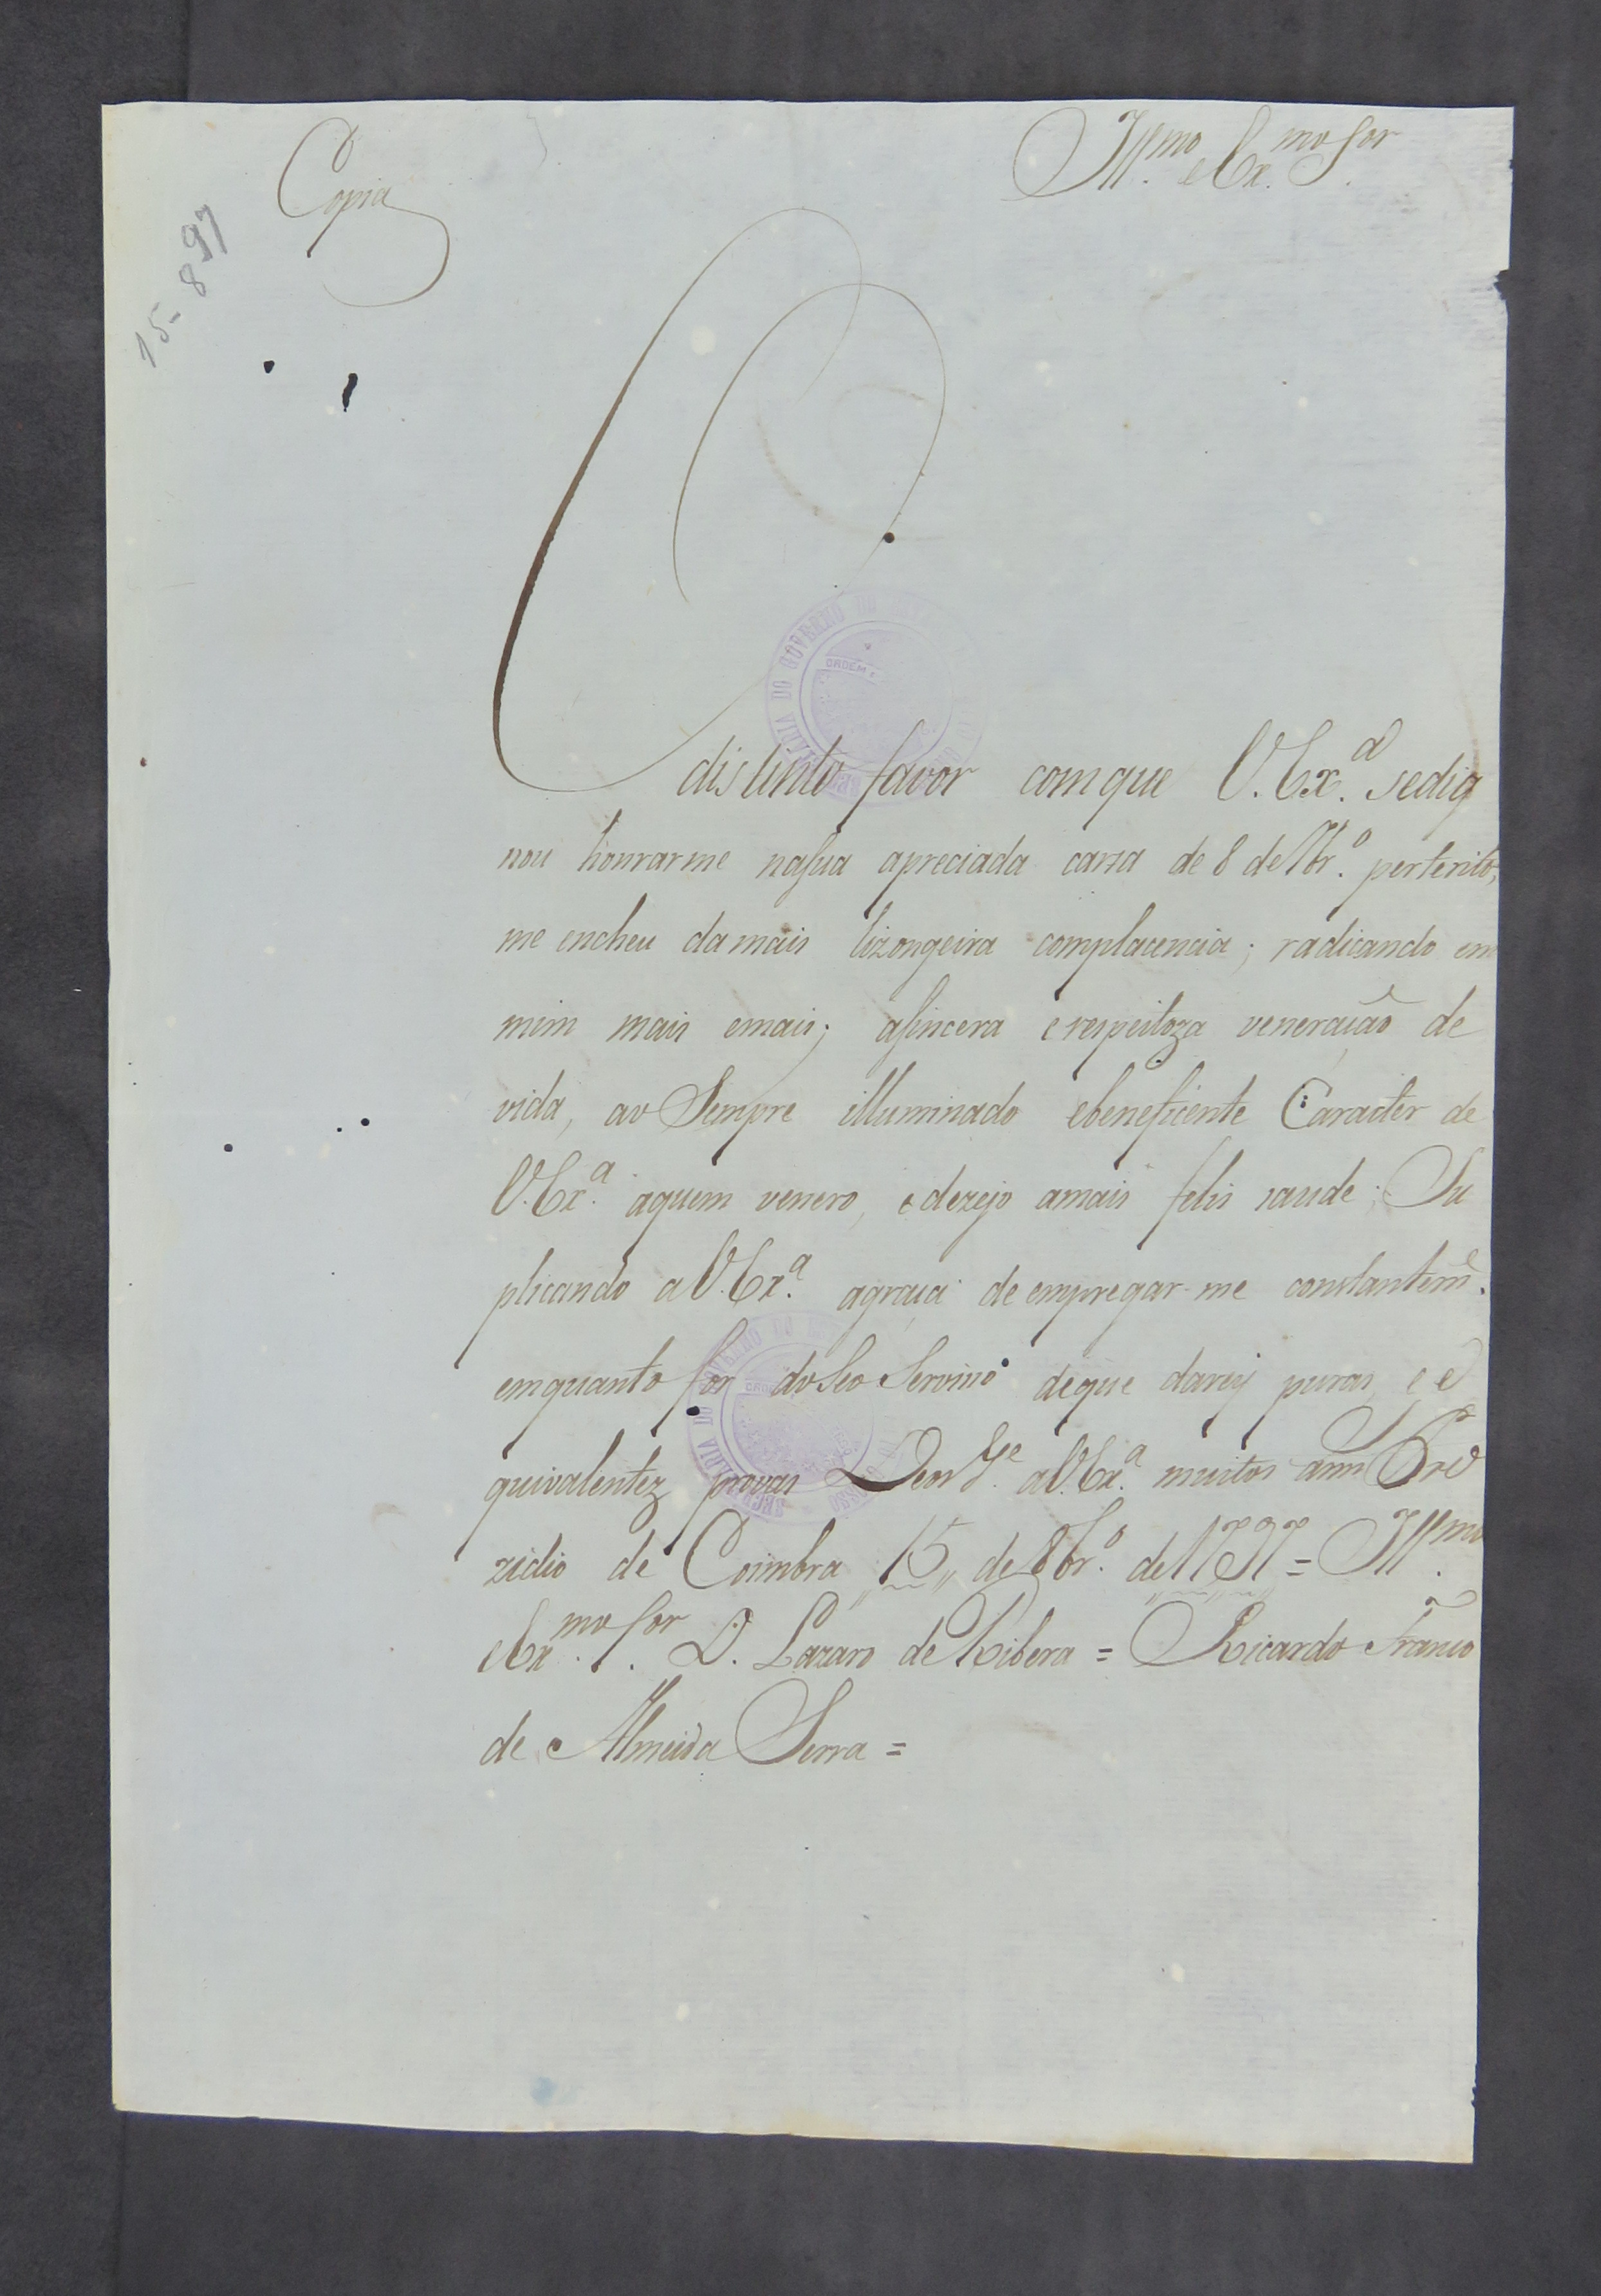 Copia
Ill.mo e Ex.mo S.or
15-8 97
O
distinto favor com que V. Ex.a se dig
nou honrarme na sua apreciada carta de 8 de 7br.o perterito,
me encheu da mais lizongeira complacencia; radicando em
mim mais e mais; a sincera e respeitoza veneração de
vida, ao Sempre illuminado e beneficente Caracter de
V. Ex.a aquem venero, e dezejo a mais felis saude; Su
plicando a V. Ex.a a graça de empregar-me constantem.e
emquanto for do Seo Serviço de que darey puras, e e
quivalentez provas Deos g.e a V. Ex.a muitos ann Pre
zidio de Coimbra 15 de 8br.o de 1797 = Ill.mo
e Ex.mo S.or D. Lazaro de Ribera = Ricardo Franco
de Almeida Serra =
SECRETARIA DO GOVERNO DO
ORDEM E